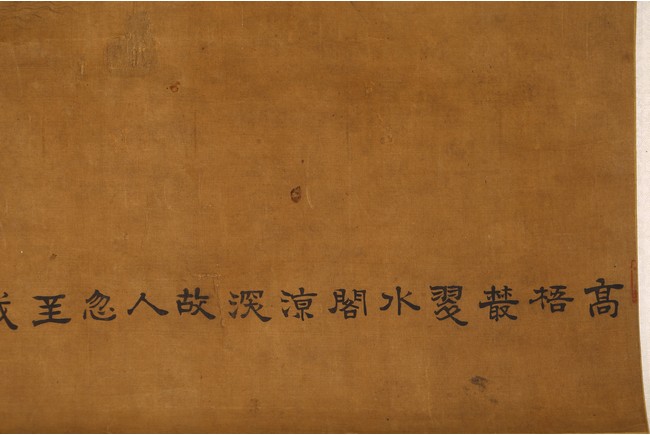 高梧叢翠水閣涼深故人忽至